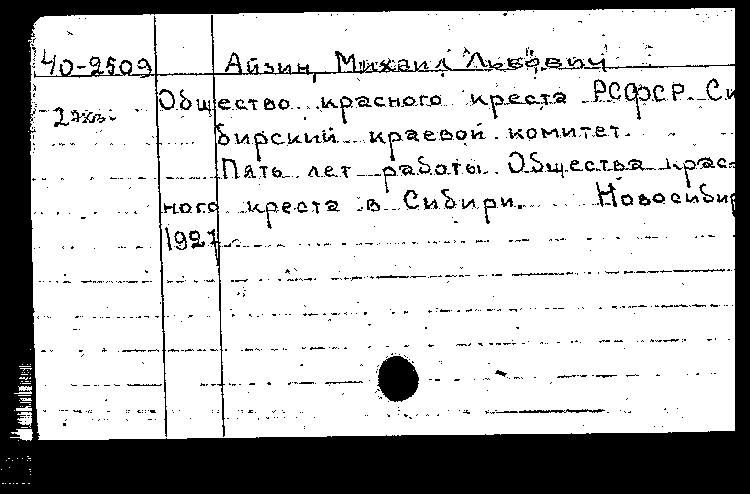 40-2509 Айзин, Михаил Львович
2 экз. Общество красного креста РСФСР. Си
бирский краевой комитет.
Пять лет работы Общества крас-
ного креста в Сибири. Новосибир
1927